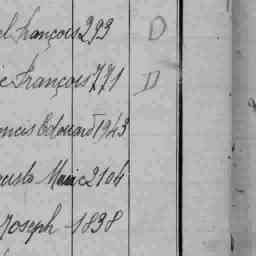 François 293 D
François 771 D
Edouard 1943
Marie 2104
Joseph 1838